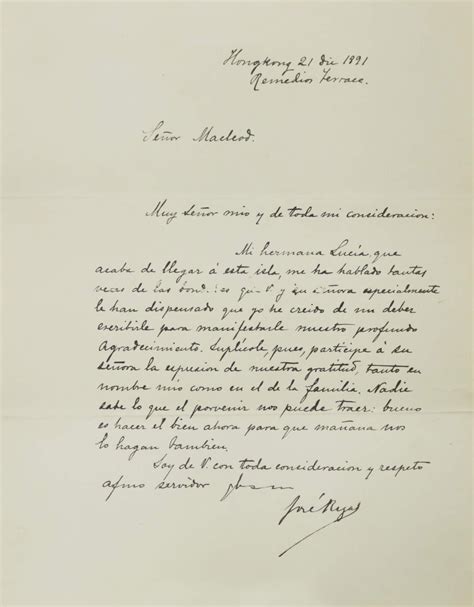 Hongkong 21 dic 1891
Remedios Terrace.
Señor Macleod.
Muy Señor mio y de toda mi consideracion:
Mi hermana Lucía, que
acaba de llegar á esta isla, me ha hablado tantas
veces de las que V. y su señora especialmente
le han dispensado que yo he creido de un deber
escribirle para manifestarle nuestro profundo
Agradecimiento. Suplícole, pues, participe á su
señora la espresion de nuestra gratitud, tanto en
nombre mio como en el de la familia. Nadie
sabe lo que el porvenir nos puede traer: bueno
es hacer el bien ahora para que mañana nos
lo hagan tambien.
Soy de V. con toda consideracion y respeto
afmo servidor
José Rizal